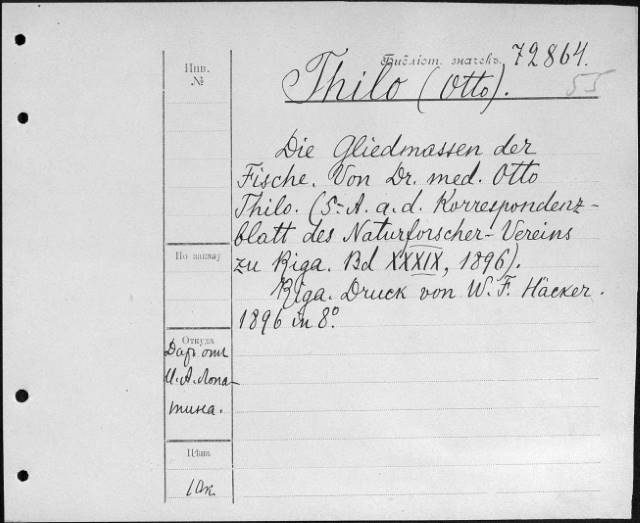 Библіот. значекъ. 72864.
55
Инв.
№
Thilo (Otto).
Die Gliedmassen der
Fische. Von Dr. med. Otto
Thilo. (S.-A. a. d. Korrespondenz-
blatt des Naturforscher-Vereins
zu Riga. Bd XXXIX, 1896).
Riga. Druck von W. F. Häcker.
1896 in 8°.
По заказу
Откуда
Даръ отъ
И. А. Лопа-
тина.
Цѣна
10к.